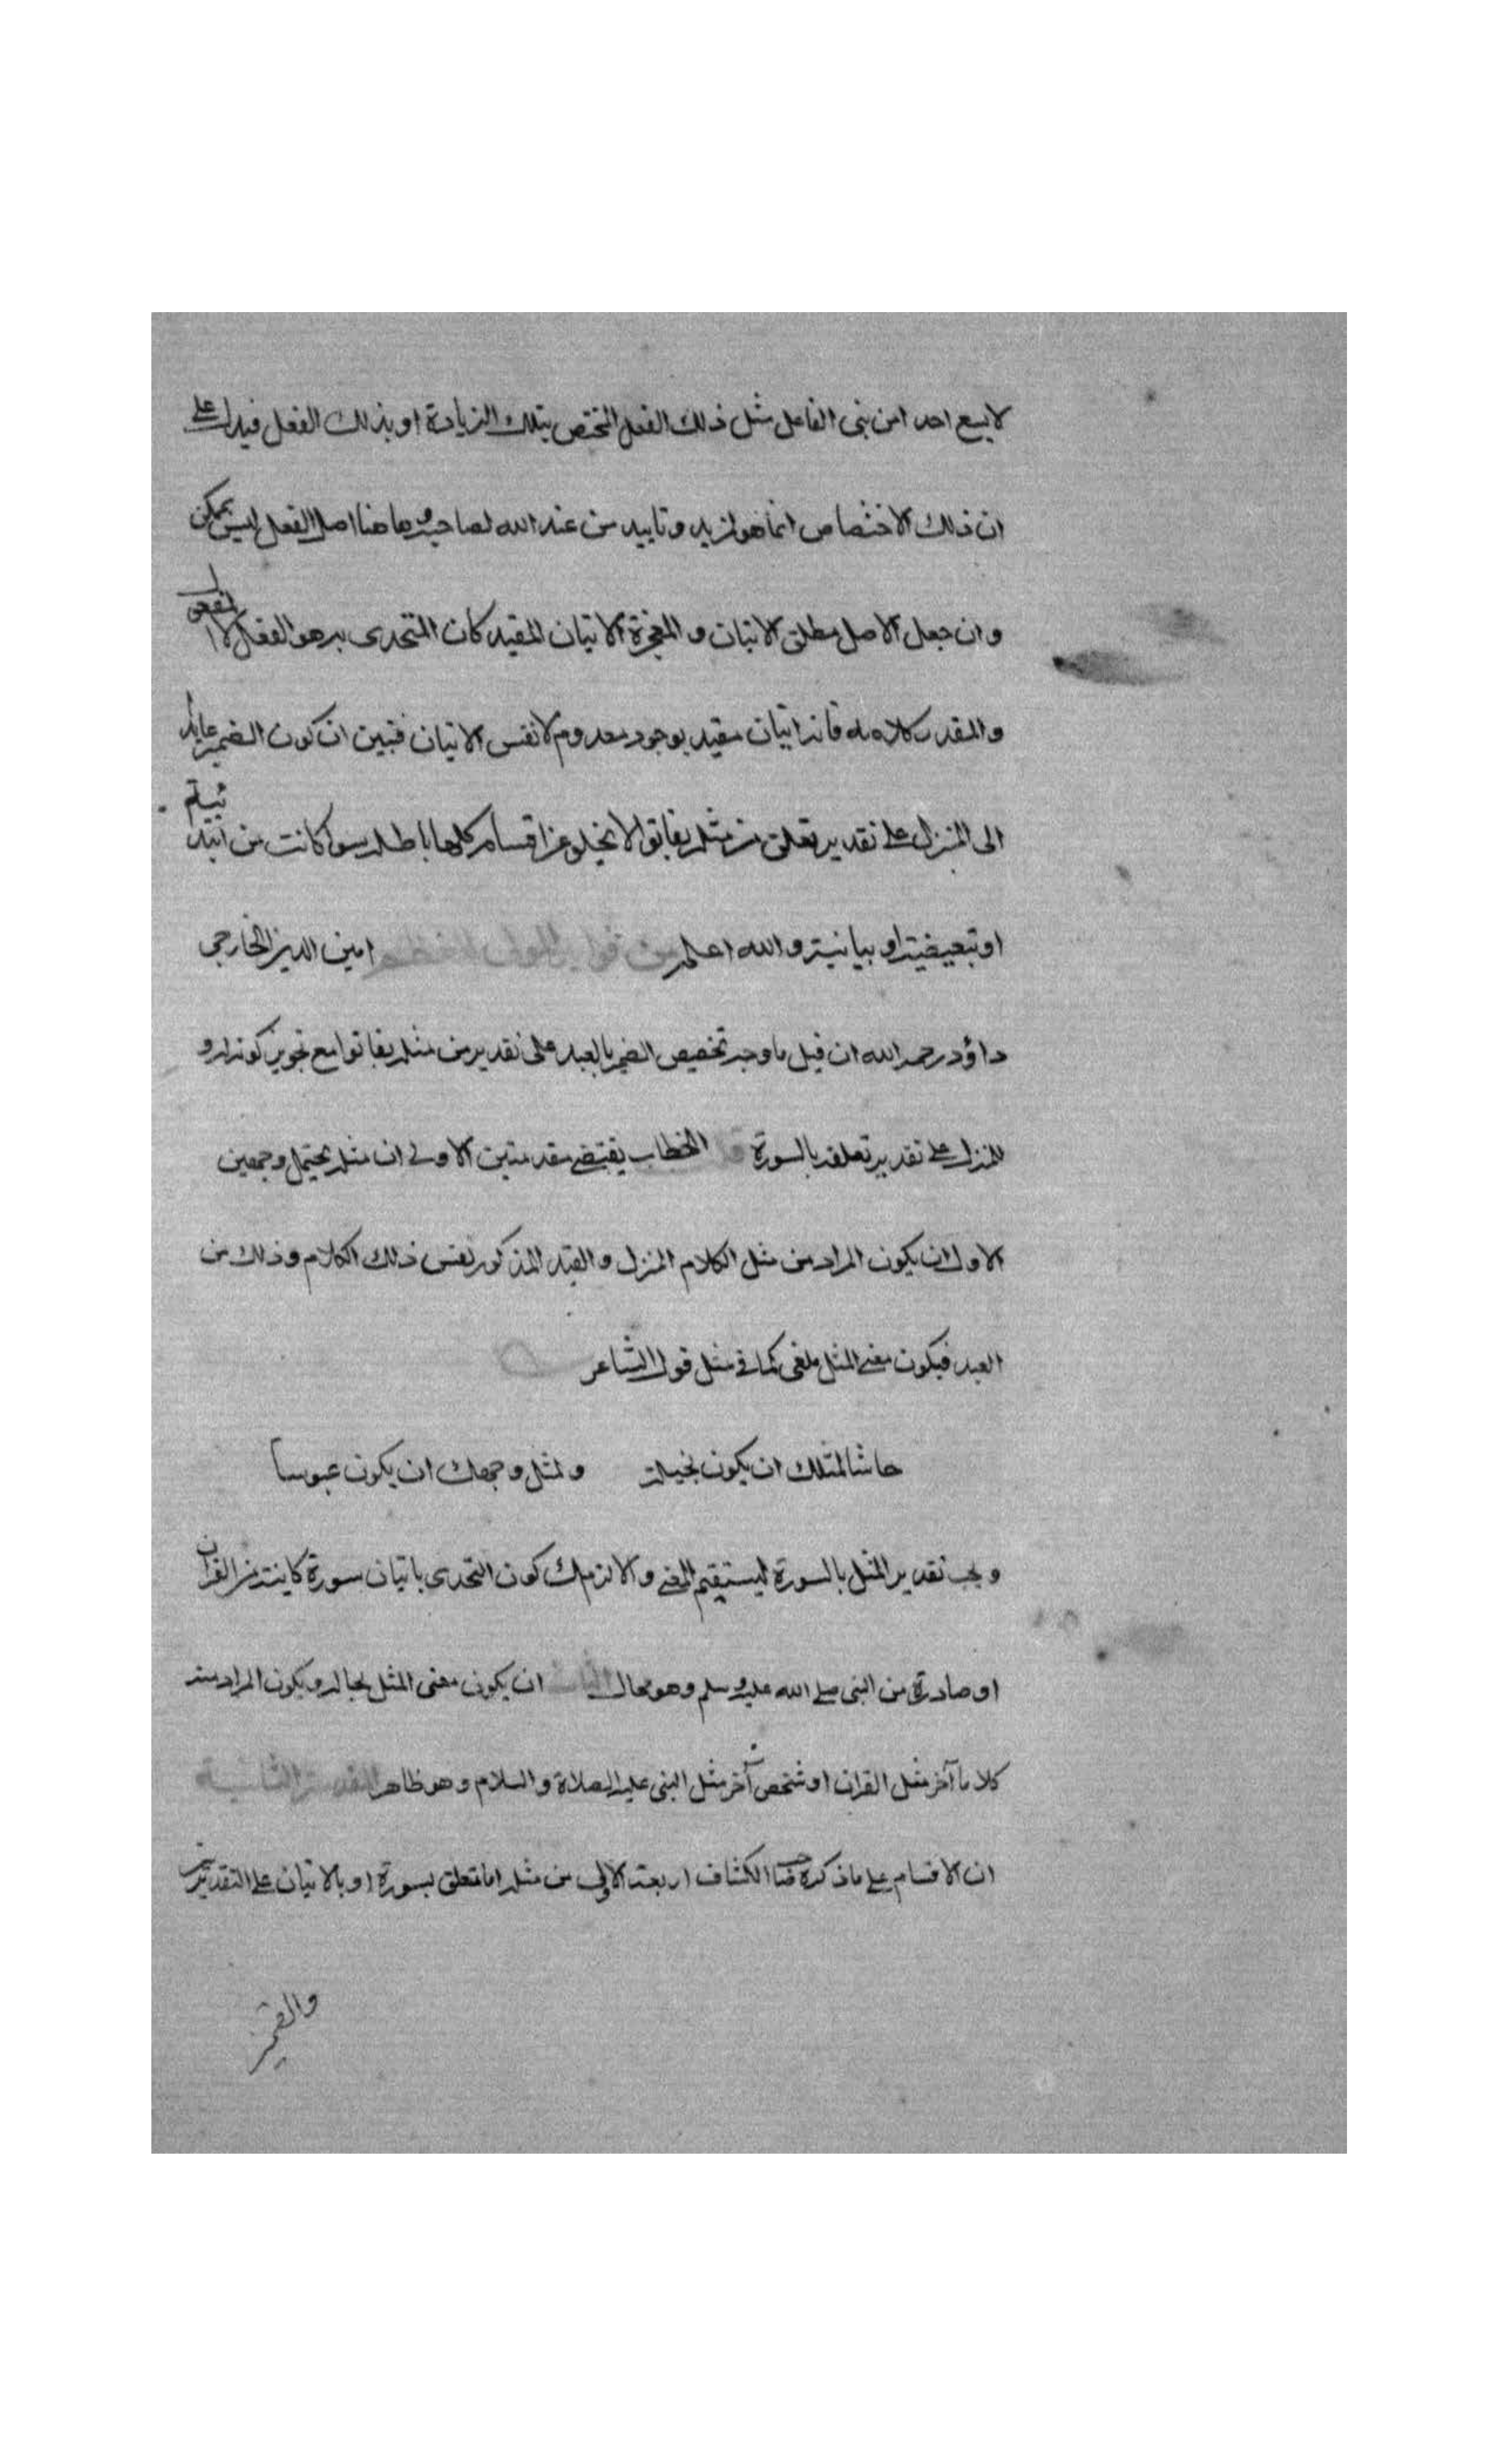 لا يسع احد امن بنى الفاعل مثل ذلك الفعل المختص بتلك الزيادة او بذلك الفعل فيدل على
ان ذلك الاختصاص انما هو لمزيد وتاييد من عند الله لصاحبه وهاهنا اصل الفعل ليس بممكن
وان جعل الاصل مطلق الاتيان والمعجزة الاتيان المقيد كان المتحدى به هو الفعل لا
والمقدر كلامه فانه اتيان مقيد بوجود معدوم لا نفس الاتيان فتبين ان كون الضمير عايدا
الى المنزل على تقدير تعلق من مثله بفاتوا لا يخلو عن اقسام كلها باطله سوا كانت من ابتدائية
او تبعيضية او بيانية والله اعلم من فوايد المولى امين الدين الخارجى
داؤد رحمه الله ان قيل ما وجه تخصيص الضمير بالعبد على تقدير من مثله بفاتوا مع تجويز كونه له و
للمنزل على تقدير تعلقه بالسورة الخطاب يقتضى مقدمتين الاولى ان مثله يحتمل وجهين
الاول ان يكون المراد من مثل الكلام المنزل والقيد المذكور نفس ذلك الكلام وذلك من
العبد فيكون معنى المثل ملغى كما فى مثل قول الشاعر
حاشا لمثلك ان يكون بخيلة ولمثل وجهك ان يكون عبوسا
ويجب تقدير المثل بالسورة ليستقيم المعنى والا لزمك كون التحدى باتيان سورة كاينة من القران
او صادرة من النبى صلى الله عليه وسلم وهو محال الثانى ان يكون معنى المثل بحاله ويكون المراد منه
كلاما آخر مثل القران او شخص آخر مثل النبى عليه الصلاة والسلام وهو ظاهر المقدمة الثانية
ان الاقسام على ما ذكره صاحب الكشاف اربعة الاولى من مثله اما متعلق بسورة او بالاتيان على التقديرين
والضمير